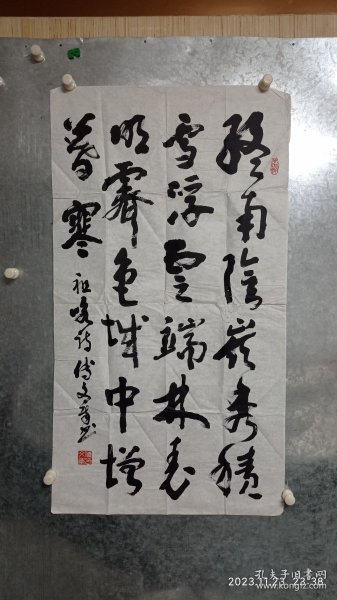 終南陰嶺秀積
雪浮雲端林表
明霽色城中增
暮寒
祖咏诗 文章书
孔夫子旧书网
2023.11.23 23:38